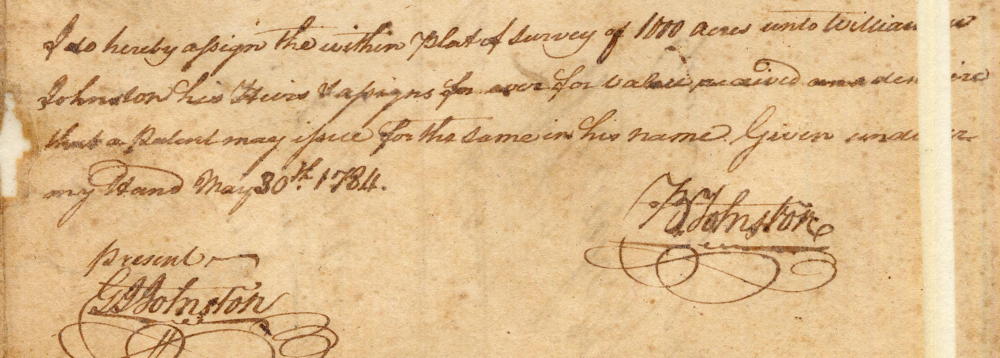 I do hereby assign the within Plat of Survey of 1000 acres unto William
Johnston his Heirs & assigns for ever for value received and desire
that a Patent may issue for the same in his name. Given under
my Hand May 30th. 1784.
Johnston
Present
G J Johnston